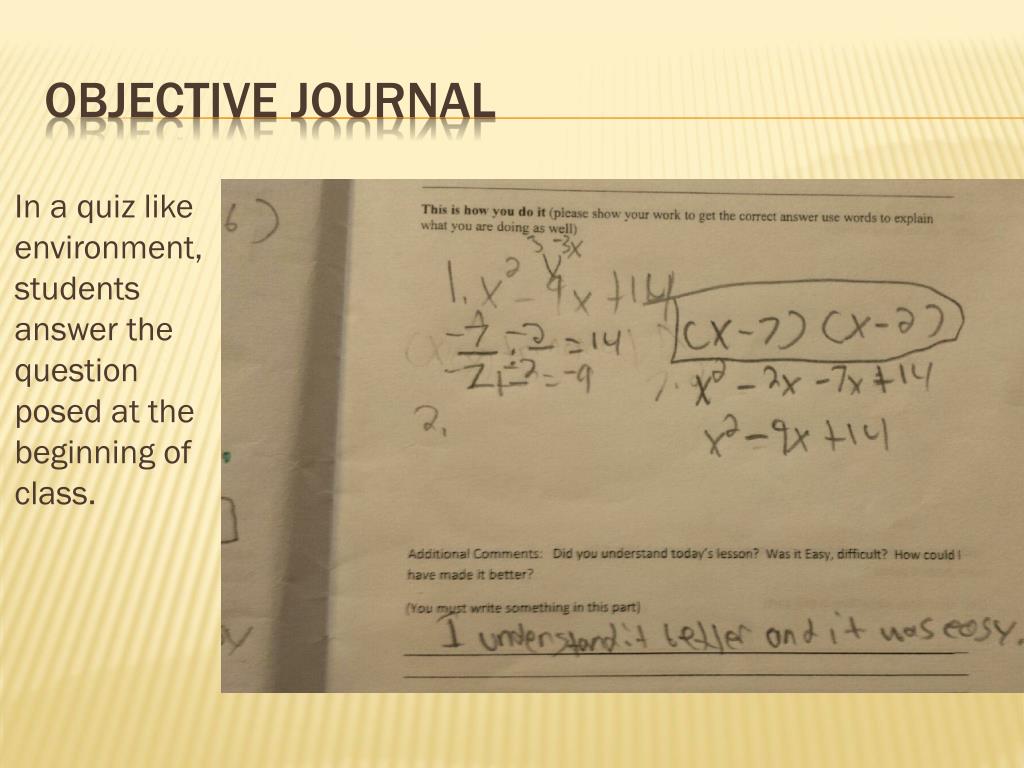 OBJECTIVE JOURNAL
In a quiz like
environment,
students
answer the
question
posed at the
beginning of
class.
6)
This is how you do it (please show your work to get the correct answer use words to explain
what you are doing as well)
3 -3x
1. x² - 9x +14
(x-7) (x-2)
-7 · -2 = 14
-7 + -2 = -9
x² - 2x - 7x + 14
2.
x² - 9x +14
Additional Comments: Did you understand today's lesson? Was it Easy, difficult? How could I
have made it better?
(You must write something in this part)
I understand it better and it was easy.